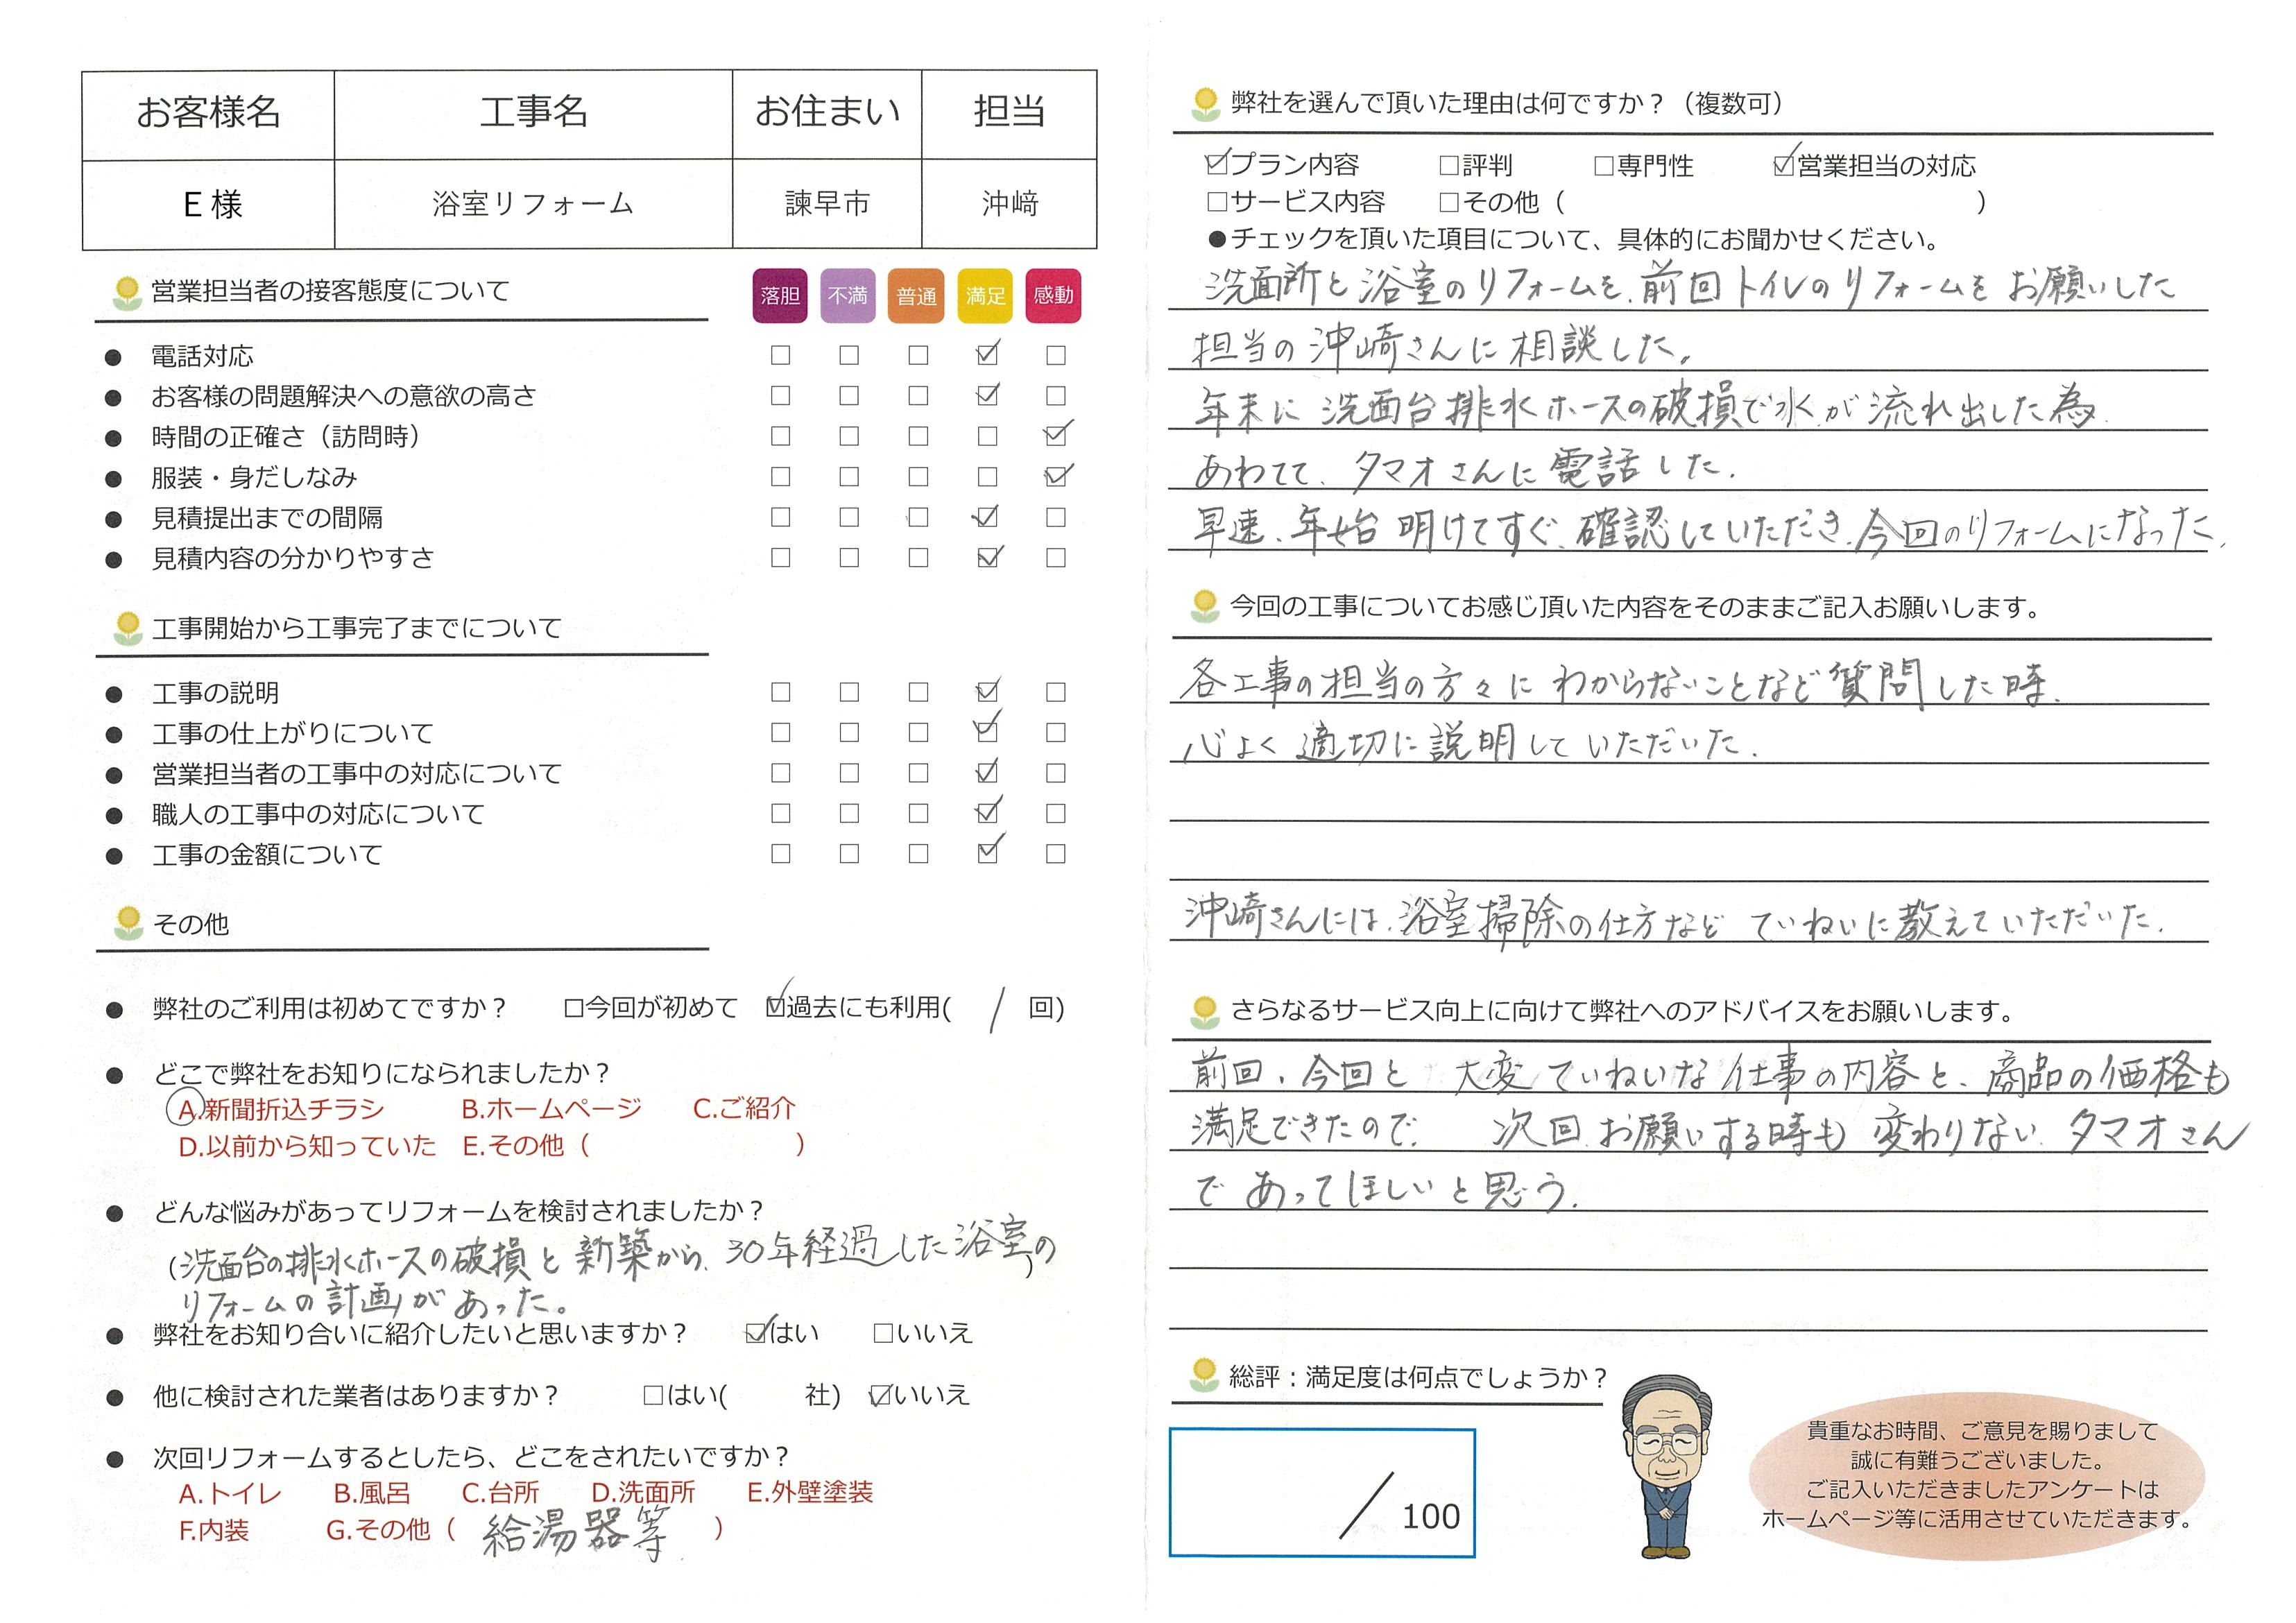 お客様名 工事名 お住まい 担当
E 様 浴室リフォーム 諫早市 沖﨑
営業担当者の接客態度について 落胆 不満 普通 満足 感動
● 電話対応 □ □ □ ☑ □
● お客様の問題解決への意欲の高さ □ □ □ ☑ □
● 時間の正確さ（訪問時） □ □ □ □ ☑
● 服装・身だしなみ □ □ □ □ ☑
● 見積提出までの間隔 □ □ □ ☑ □
● 見積内容の分かりやすさ □ □ □ ☑ □
工事開始から工事完了までについて
● 工事の説明 □ □ □ ☑ □
● 工事の仕上がりについて □ □ □ ☑ □
● 営業担当者の工事中の対応について □ □ □ ☑ □
● 職人の工事中の対応について □ □ □ ☑ □
● 工事の金額について □ □ □ ☑ □
その他
● 弊社のご利用は初めてですか？ □今回が初めて ☑過去にも利用( / 回)
● どこで弊社をお知りになられましたか？
A.新聞折込チラシ B.ホームページ C.ご紹介
D.以前から知っていた E.その他（ ）
● どんな悩みがあってリフォームを検討されましたか？
(洗面台の排水ホースの破損と新築から、30年経過した浴室の)
リフォームの計画があった。
● 弊社をお知り合いに紹介したいと思いますか？ ☑はい □いいえ
● 他に検討された業者はありますか？ □はい( 社) ☑いいえ
● 次回リフォームするとしたら、どこをされたいですか？
A.トイレ B.風呂 C.台所 D.洗面所 E.外壁塗装
F.内装 G.その他（ 給湯器等 ）
弊社を選んで頂いた理由は何ですか？（複数可）
☑プラン内容 □評判 □専門性 ☑営業担当の対応
□サービス内容 □その他（ ）
●チェックを頂いた項目について、具体的にお聞かせください。
洗面所と浴室のリフォームを、前回トイレのリフォームをお願いした
担当の沖﨑さんに相談した。
年末に洗面台排水ホースの破損で水が流れ出した為、
あわてて、タマオさんに電話した。
早速、年始明けてすぐ、確認していただき、今回のリフォームになった。
今回の工事についてお感じ頂いた内容をそのままご記入お願いします。
各工事の担当の方々にわからないことなど質問した時、
心よく適切に説明していただいた。
沖﨑さんには、浴室掃除の仕方などていねいに教えていただいた。
さらなるサービス向上に向けて弊社へのアドバイスをお願いします。
前回、今回と 大変ていねいな仕事の内容と、商品の価格も
満足できたので、 次回お願いする時も変わりない、タマオさん
であってほしいと思う。
総評：満足度は何点でしょうか？
/ 100
貴重なお時間、ご意見を賜りまして
誠に有難うございました。
ご記入いただきましたアンケートは
ホームページ等に活用させていただきます。